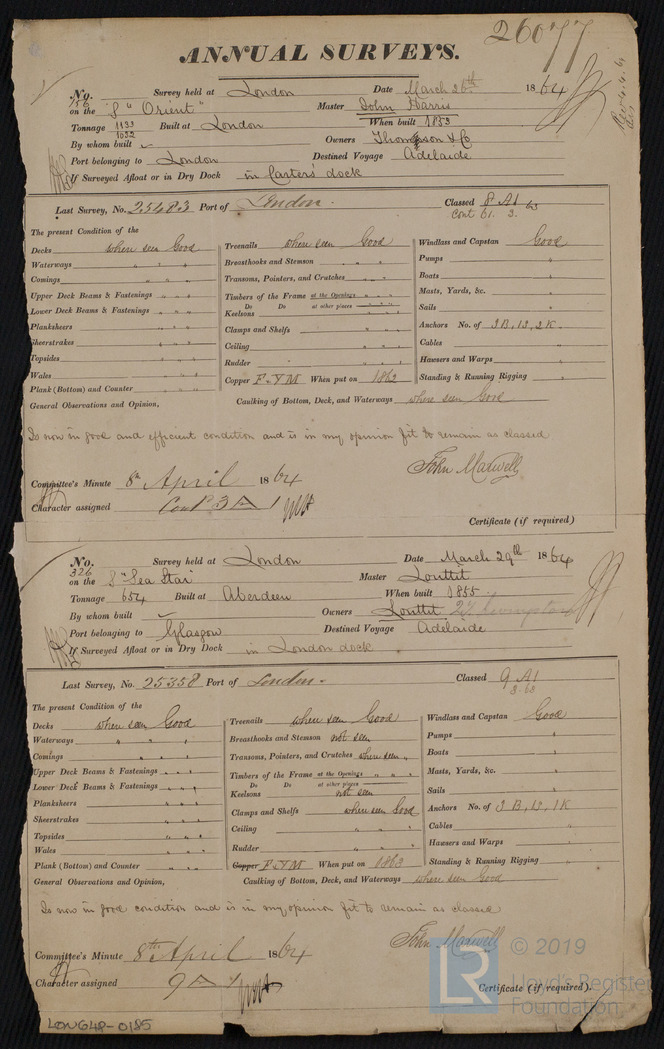 26077
ANNUAL SURVEYS.
No. 156 Survey held at London Date March 26th 1864
on the S "Orient" Master John Harris
Tonnage 1133 1032 Built at London When built 1853
By whom built Owners Thompson & Co
Port belonging to London Destined Voyage Adelaide
If Surveyed Afloat or in Dry Dock in Carters dock
Last Survey, No. 25483 Port of London. Classed 8 A1 63
Cont 61. 3.
The present Condition of the
Decks where seen Good Treenails where seen Good Windlass and Capstan Good
Waterways " " " Breasthooks and Stemson " " " Pumps "
Comings " " " Transoms, Pointers, and Crutches " " " Boats "
Upper Deck Beams & Fastenings " " " Timbers of the Frame at the Openings " " " Masts, Yards, &c. "
Lower Deck Beams & Fastenings " " " Do Do at other places " " " Sails "
Keelsons " " "
Planksheers " " " Clamps and Shelfs " " " Anchors No. of 3B, 1S, 2K.
Sheerstrakes " " " Ceiling " " " Cables "
Topsides " " " Rudder " " " Hawsers and Warps "
Wales " " " Copper F & YM When put on 1862 Standing & Running Rigging "
Plank (Bottom) and Counter " " " Caulking of Bottom, Deck, and Waterways where seen Good
General Observations and Opinion,
Is now in good and efficient condition and is in my opinion fit to remain as classed
John Maxwell
Committee's Minute 8th April 1864
Character assigned Cont P 3 A 1
Certificate (if required)
No. 326 Survey held at London Date March 29th 1864
on the S "Sea Star" Master Louttit
Tonnage 654 Built at Aberdeen When built 1855
By whom built Owners Louttit
Port belonging to Glasgow Destined Voyage Adelaide
If Surveyed Afloat or in Dry Dock in London dock
Last Survey, No. 25358 Port of London. Classed 9 A1
3.63
The present Condition of the
Decks where seen Good Treenails where seen Good Windlass and Capstan Good
Waterways " " " Breasthooks and Stemson not seen Pumps "
Comings " " " Transoms, Pointers, and Crutches where seen " Boats "
Upper Deck Beams & Fastenings " " " Timbers of the Frame at the Openings " " " Masts, Yards, &c. "
Lower Deck Beams & Fastenings " " " Do Do at other places
Keelsons not seen Sails "
Planksheers " " " Clamps and Shelfs where seen Good Anchors No. of 3 B, 1S, 1K
Sheerstrakes " " " Ceiling " " " Cables "
Topsides " " " Rudder " " " Hawsers and Warps "
Wales " " " Copper F & YM When put on 1863 Standing & Running Rigging "
Plank (Bottom) and Counter " " " Caulking of Bottom, Deck, and Waterways where seen Good
General Observations and Opinion,
Is now in good condition and is in my opinion fit to remain as classed
John Maxwell
Committee's Minute 8th April 1864
Character assigned 9 A 1
Certificate (if required).
LON648-0185
LR © 2019
Lloyd's Register
Foundation